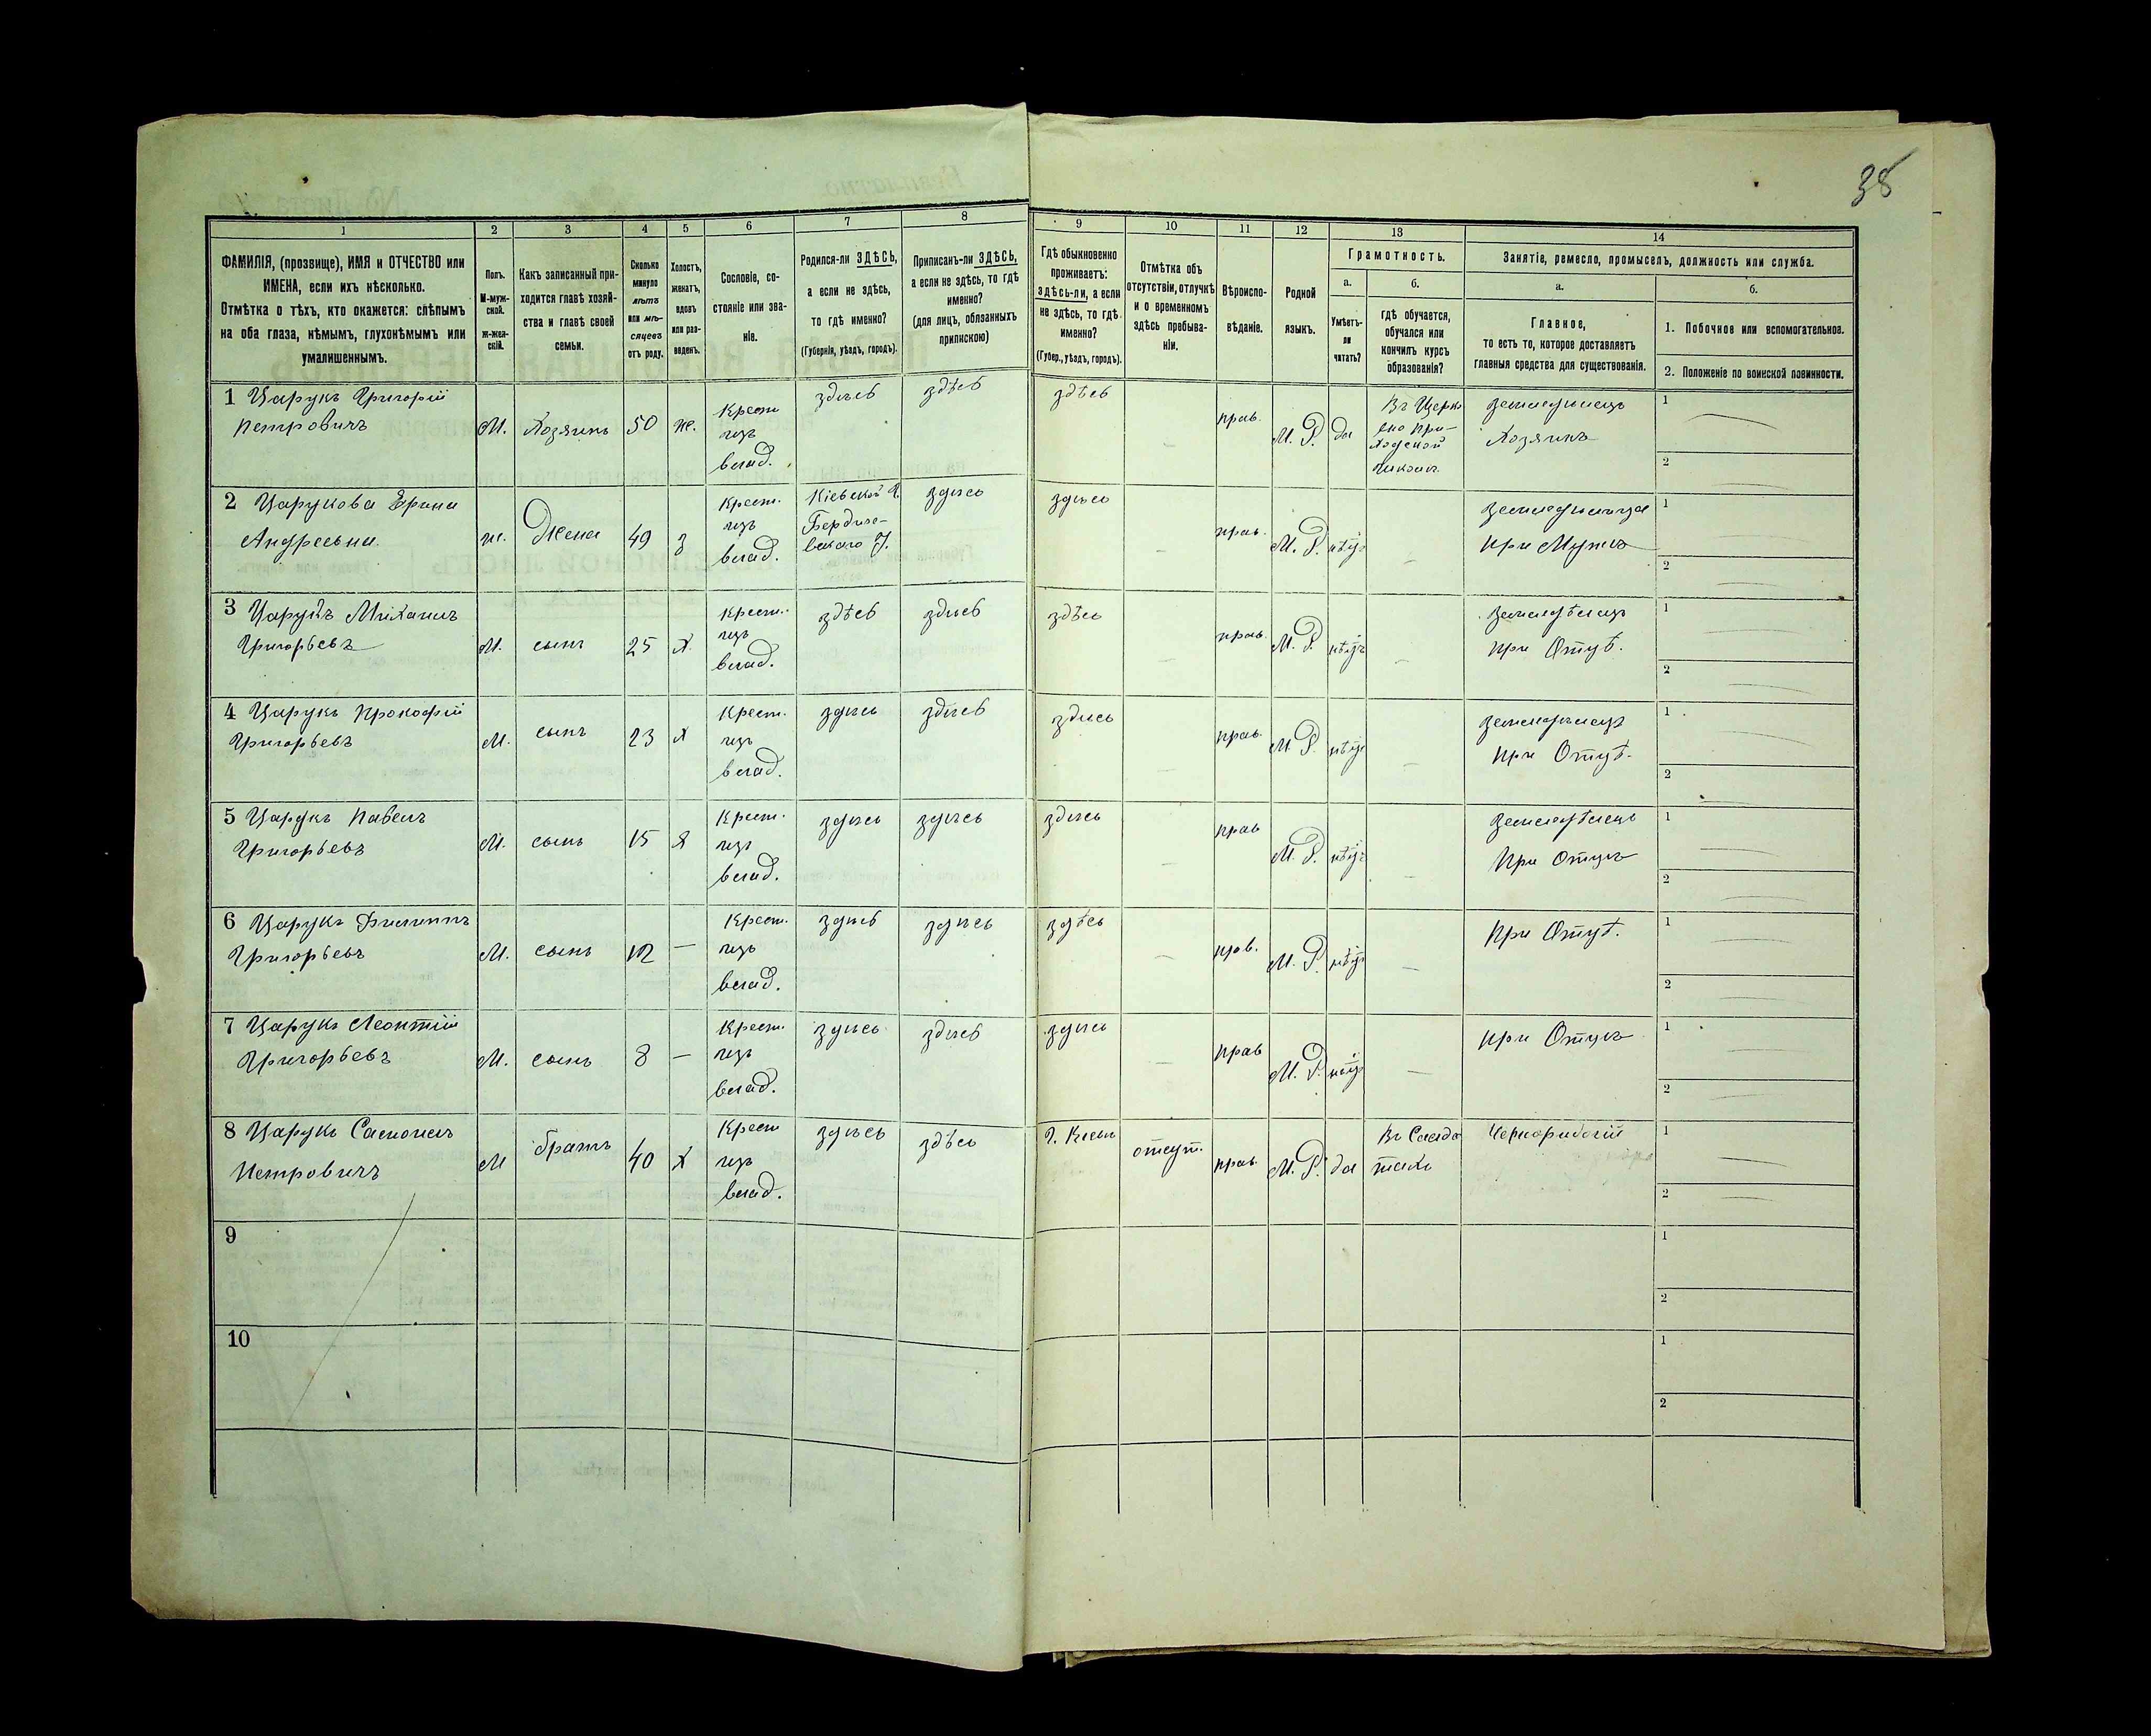 38
1
2
3
4
5
6
7
8
9
10
11
12
13
14
ФАМИЛІЯ, (прозвище), ИМЯ и ОТЧЕСТВО или
ИМЕНА, если ихъ нѣсколько.
Отмѣтка о тѣхъ, кто окажется: слѣпымъ
на оба глаза, нѣмымъ, глухонѣмымъ или
умалишеннымъ.
Полъ.
М-муж-
ской.
ж-жен-
скій.
Какъ записанный при-
ходится главѣ хозяй-
ства и главѣ своей
семьи.
Сколько
минуло
лѣтъ
или мѣ-
сяцевъ
отъ роду.
Холостъ,
женатъ,
вдовъ
или раз-
веденъ.
Сословіе, со-
стояніе или зва-
ніе.
Родился-ли ЗДѢСЬ,
а если не здѣсь,
то гдѣ именно?
(Губернія, уѣздъ, городъ).
Приписанъ-ли ЗДѢСЬ,
а если не здѣсь, то гдѣ
именно?
(для лицъ, обязанныхъ
припискою)
Гдѣ обыкновенно
проживаетъ:
здѣсь-ли, а если
не здѣсь, то гдѣ
именно?
(Губер., уѣздъ, городъ).
Отмѣтка объ
отсутствіи, отлучкѣ
и о временномъ
здѣсь пребыва-
ніи.
Вѣроиспо-
вѣданіе.
Родной
языкъ.
Грамотность.
а.
Умѣетъ-
ли
читать?
б.
гдѣ обучается,
обучался или
кончилъ курсъ
образованія?
Занятіе, ремесло, промыселъ, должность или служба.
а.
Главное,
то есть то, которое доставляетъ
главныя средства для существованія.
б.
1. Побочное или вспомогательное.
2. Положеніе по воинской повинности.
1 Царукъ Григорій
Петровичъ
М. Хозяинъ 50 ж.
Крест.
изъ
влад.
здѣсь здѣсь здѣсь - прав. М. Р. да
Въ Церко
вно при-
ходской
школѣ
Земледѣлецъ
Хозяинъ
1
2
2 Царукова Ерина
Андреевна
ж. Жена 49 з
Крест.
изъ
влад.
Кіевской Г.
Бердиче-
вскаго У.
здѣсь здѣсь - прав. М. Р. нѣтъ -
Земледѣлица
при Мужѣ
1
2
3 Царукъ Михаилъ
Григорьевъ
М. сынъ 25 х.
Крест.
изъ
влад.
здѣсь здѣсь здѣсь - прав. М. Р. нѣтъ -
Земледѣлецъ
при Отцѣ.
1
2
4 Царукъ Прокофій
Григорьевъ
М. сынъ 23 х
Крест.
изъ
влад.
здѣсь здѣсь здѣсь - прав. М. Р. нѣтъ -
Земледѣлецъ
при Отцѣ.
1
2
5 Царукъ Павелъ
Григорьевъ
М. сынъ 15 х
Крест.
изъ
влад.
здѣсь здѣсь здѣсь - прав М. Р. нѣтъ -
Земледѣлецъ
При Отцѣ
1
2
6 Царукъ Филиппъ
Григорьевъ
М. сынъ 12 —
Крест.
изъ
влад.
здѣсь здѣсь здѣсь - прав. М. Р. нѣтъ -
При Отцѣ.
1
2
7 Царукъ Леонтій
Григорьевъ
М. сынъ 8 —
Крест.
изъ
влад.
здѣсь здѣсь здѣсь - прав М. Р. нѣтъ -
при Отцѣ
1
2
8 Царукъ Самоилъ
Петровичъ
М братъ 40 х
Крест
изъ
влад.
здѣсь здѣсь Г. Кіевъ отсут. прав. М. Р. да
Въ Солда
тахъ
1
2
9
1
2
10
1
2